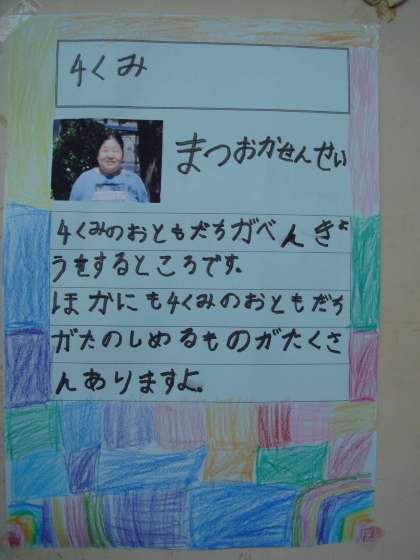 4くみ
まつおかせんせい
4くみのおともだちがべんきょ
うをするところです。
ほかにも4くみのおともだち
がたのしめるものがたくさ
んありますよ。